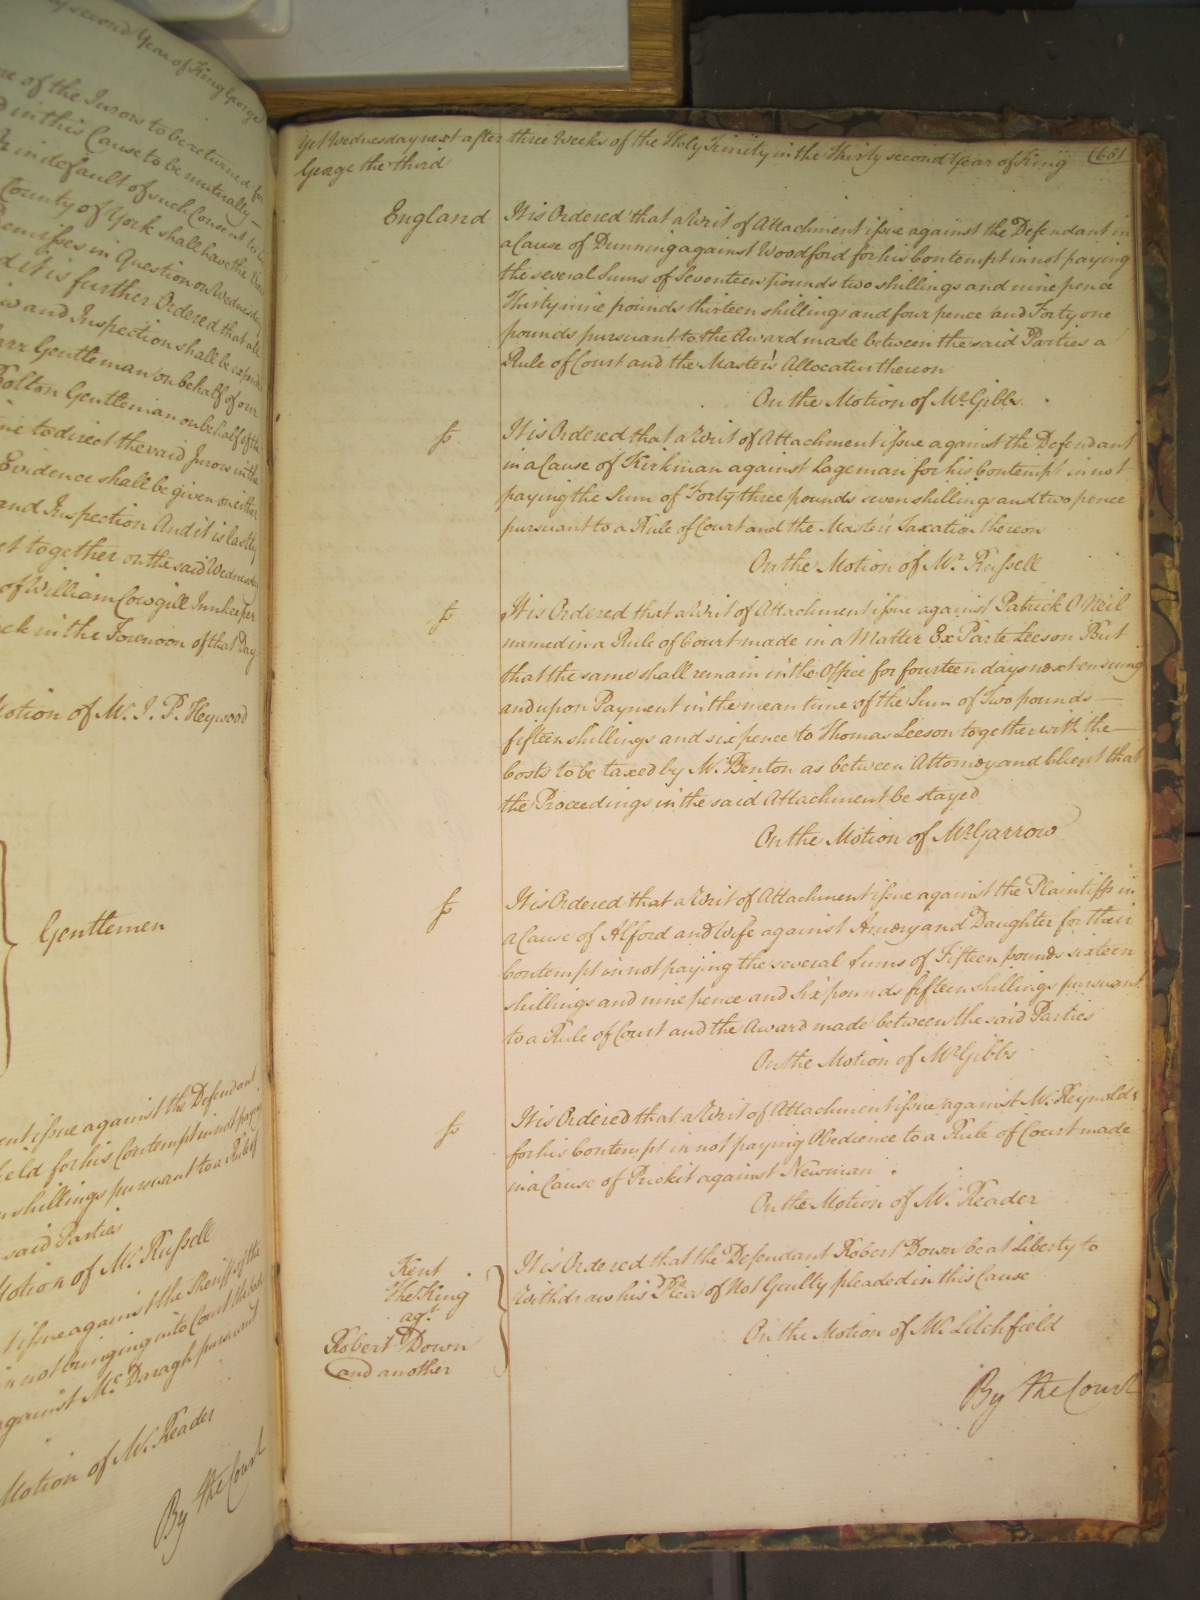 ty second Year of King George
re of the Jurors to be returned for
d in this Cause to be mutually
in default of such Consent to
County of York shall have the View
Premisses in Question on Wednesday
d it is further Ordered that all
iew and Inspection shall be
arr Gentleman on behalf of our
Bolton Gentleman on behalf of the
me to direct the said Jurors in the
Evidence shall be given on either
and Inspection And it is lastly
et together on the said Wednesday
of William Cowgill Innkeeper
ock in the Forenoon of that Day
Motion of Mr. J. P. Heywood
Gentlemen
ent issue against the Defendant
ield for his Contempt in not paying
n shillings pursuant to a Rule of
said Parties
Motion of Mr. Russell
t issue against the Sheriff of the
in not bringing into Court the
against McDaragh pursuant
Motion of Mr. Reader
By the Court
Yet Wednesday next after three Weeks of the Holy Trinity in the Thirty second Year of King (661
George the third
England It is Ordered that a Writ of Attachment issue against the Defendant in
a Cause of Dunning against Woodford for his Contempt in not paying
the several Sums of Seventeen pounds two shillings and nine pence
Thirty nine pounds thirteen shillings and four pence and Forty one
pounds pursuant to the Award made between the said Parties a
Rule of Court and the Master's Allocatur thereon
On the Motion of Mr. Gibbs
fs It is Ordered that a Writ of Attachment issue against the Defendant
in a Cause of Kirkman against Lageman for his Contempt in not
paying the Sum of Forty three pounds seven shillings and two pence
pursuant to a Rule of Court and the Master's Taxation thereon
On the Motion of Mr. Russell
fs It is Ordered that a Writ of Attachment issue against Patrick O'Neil
named in a Rule of Court made in a Matter Ex Parte Leeson But
that the same shall remain in the Office for fourteen days next ensuing
and upon Payment in the mean time of the Sum of Two pounds
fifteen shillings and six pence to Thomas Leeson together with the
Costs to be taxed by Mr. Benton as between Attorney and Client that
the Proceedings in the said Attachment be stayed
On the Motion of Mr. Garrow
fs It is Ordered that a Writ of Attachment issue against the Plaintiffs in
a Cause of Alford and Wife against Amory and Daughter for their
Contempt in not paying the several Sums of Fifteen pounds sixteen
shillings and nine pence and Six pounds fifteen shillings pursuant
to a Rule of Court and the Award made between the said Parties
On the Motion of Mr. Gibbs
fs It is Ordered that a Writ of Attachment issue against Mr. Reynolds
for his Contempt in not paying Obedience to a Rule of Court made
in a Cause of Pricket against Newman
On the Motion of Mr. Reader
Kent
The King
agt.
Robert Down
and another
It is Ordered that the Defendant Robert Down be at Liberty to
Withdraw his Plea of Not Guilty pleaded in this Cause
On the Motion of Mr. Litchfield
By the Court